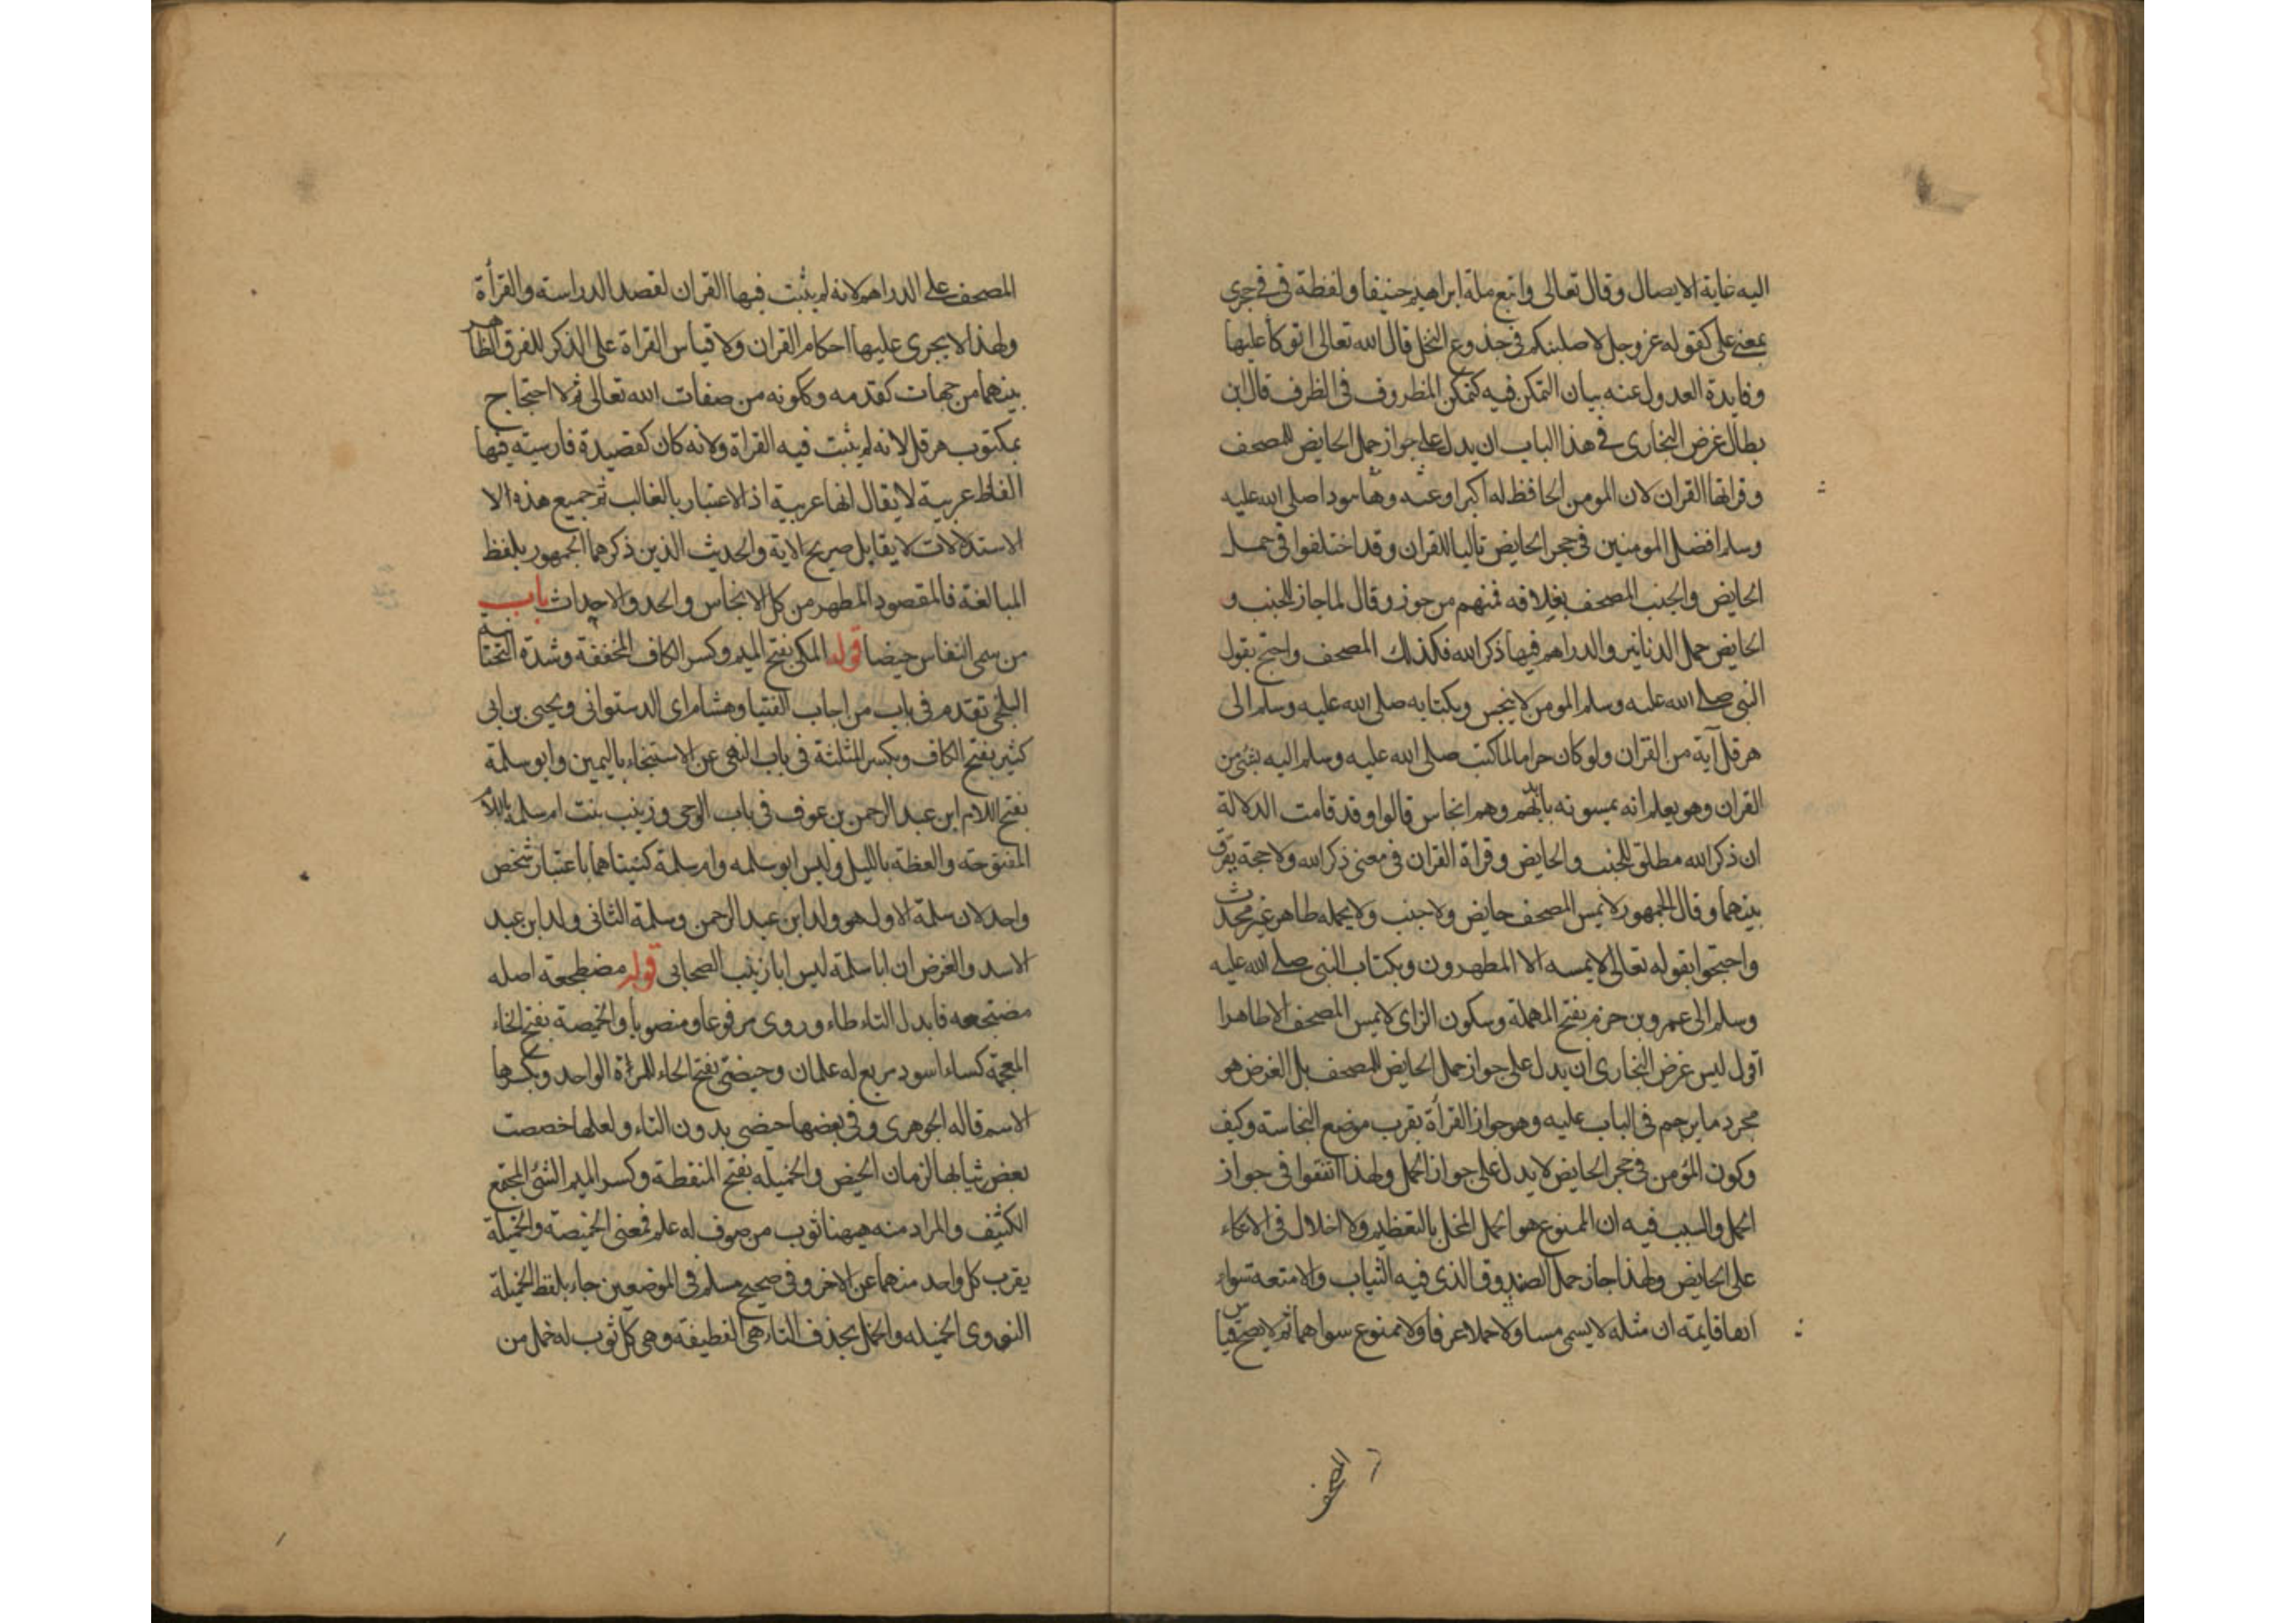 اليه غاية الايصال وقال تعالى واتبع ملة ابراهيم حنيفا ولفظة في في حجري
بمعنى على كقوله عز وجل لاصلبنكم في جذوع النخل قال الله تعالى اتوكأ عليها
وفايدة العدول عنه بيان التمكن فيه كتمكن المظروف في الظرف قال ابن
بطال غرض البخارى في هذا الباب ان يدل على جواز حمل الحايض للمصحف
وقراتها القران لان المومن الحافظ له اكبر اوعيته وها هوذا صلى الله عليه
وسلم افضل المومنين في حجر الحايض تاليا للقران وقد اختلفوا في حمل
الحايض والجنب المصحف بغلافه فمنهم من جوز وقال لما جاز للجنب و
الحايض حمل الدنانير والدراهم فيها ذكر الله فكذلك المصحف واحتج بقول
النبى صلى الله عليه وسلم المومن لا ينجس وبكتابه صلى الله عليه وسلم الى
هرقل آية من القران ولو كان حراما لما كتب صلى الله عليه وسلم اليه بشئ من
القران وهو يعلم انه يمسونه بايديهم وهم انجاس قالوا وقد قامت الدلالة
ان ذكر الله مطلق للجنب والحايض وقراة القران في معنى ذكر الله ولا حجة يفرق
بينهما وقال الجمهور لا يمس المصحف حايض ولا جنب ولا يحمله طاهر غير محدث
واحتجوا بقوله تعالى لا يمسه الا المطهرون وبكتاب النبى صلى الله عليه
وسلم الى عمرو بن حزم بفتح المهملة وسكون الزاى لا يمس المصحف الا طاهرا
اقول ليس غرض البخارى ان يدل على جواز حمل الحايض للمصحف بل الغرض هو
مجرد ما يرجم في الباب عليه وهو جواز القرأة بقرب موضع النجاسة وكيف
وكون المؤمن في حجر الحايض لا يدل على جواز الحمل ولهذا اتفقوا في جواز
الحمل والسبب فيه ان الممنوع هو الحمل المخل بالتعظيم ولا اخلال في الاتكاء
على الحايض ولهذا جاز حمل الصندوق الذى فيه الثياب والامتعة سواء
انها قايمة ان مثله لا يسمى مسا ولا حملا عرفا ولا ممنوع سواهما ثم لا يصح قياس
المصحف
المصحف على الدراهم لانه لم يثبت فيها القران لقصد الدراسة والقرأة
ولهذا لا يجرى عليها احكام القران ولا قياس القراة على الذكر للفرق الظاهر
بينهما من جهات كقدمه وكونه من صفات الله تعالى ثم لا احتجاج
بمكتوب هرقل لانه لم يثبت فيه القراة ولانه كان كقصيدة فارسية فيها
الفاظ عربية لا يقال انها عربية اذ الاعتبار بالغالب ثم جميع هذه الا
الاستدلالات لا يقابل صريح الاية والحديث الذين ذكرهما الجمهور بلفظ
المبالغة فالمقصود المطهر من كل الانجاس والحد والاحداث باب
من سمى النفاس حيضا قوله المكى بفتح الميم وكسر الكاف المخففة وشدة التحتانية
البلخى تقدم في باب من اجاب الفتيا وهشام اى الدستوانى ويحيى بن ابى
كثير بفتح الكاف وبكسر المثلثة في باب النهى عن الاستنجاء باليمين وابو سلمة
بفتح اللام ابن عبد الرحمن بن عوف في باب الوحى وزينب بنت ام سلمة باللام
المفتوحة والعظة بالليل وليس ابو سلمه وام سلمة كنيتاهما باعتبار شخص
واحد لان سلمة الاول هو ولد ابن عبد الرحمن وسلمة الثانى ولد ابن عبد
الاسد والغرض ان ابا سلمة ليس ابا زينب الصحابى قوله مضطجعة اصله
مضتجعه فابدل التاء طاء وروى مرفوعا ومنصوبا والخميصة بفتح الخاء
المعجمة كساء اسود مربع له علمان وحيضتى بفتح الحاء للمرأة الواحد وبكسرها
الاسم قاله الجوهرى وفي بعضها حيضى بدون التاء ولعلها خصصت
بعض ثيابها لزمان الحيض والخميله بفتح المنقطة وكسر الميم الشئ المجتمع
الكثيف والمراد منه ههنا ثوب من صوف له علم فمعنى الخميصة والخميلة
يقرب كل واحد منهما عن الاخر وفي صحيح مسلم في الموضعين جاء بلفظ الخميلة
النووى الخميله والخمل بحذف التاء هى القطيفة وهى كل ثوب له خمل من